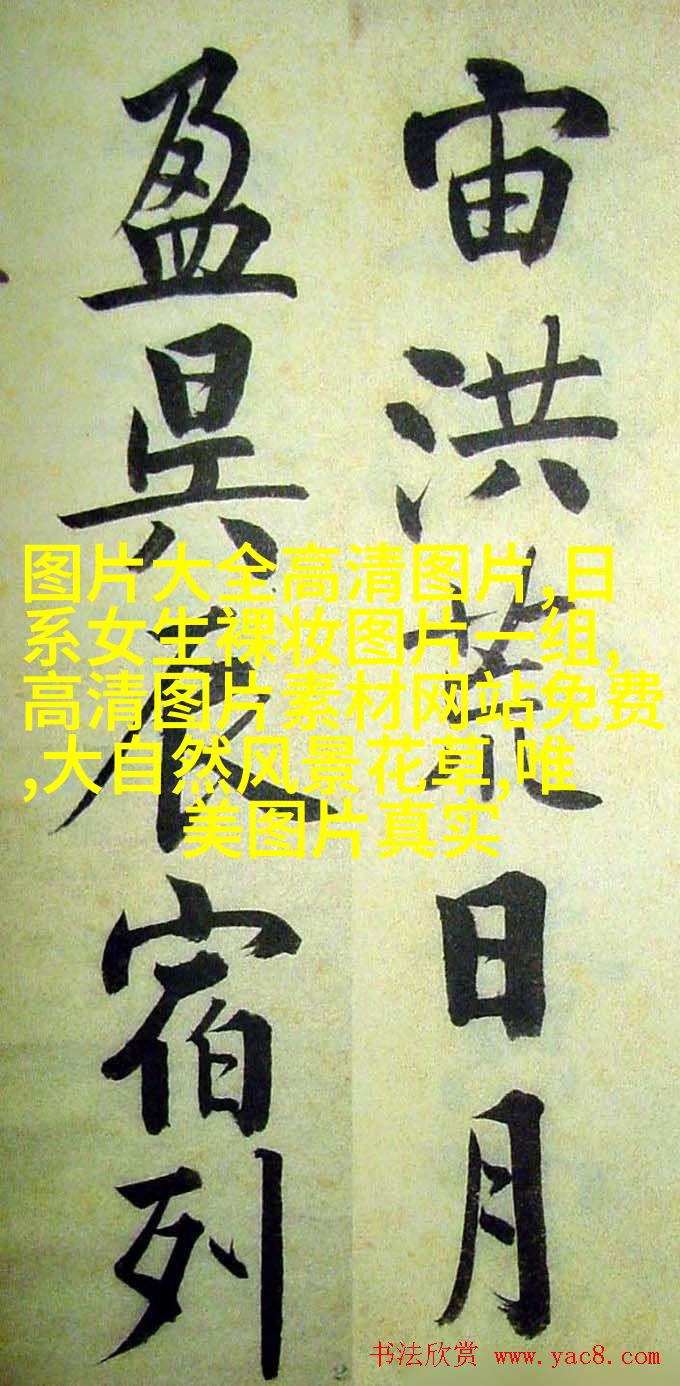 宙洪荒日月
盈昃辰宿列
图片大全高清图片,日
系女生裸妆图片一组,
高清图片素材网站免费
,大自然风景花草,唯
美图片真实
书法欣赏 www.yac8.com
2